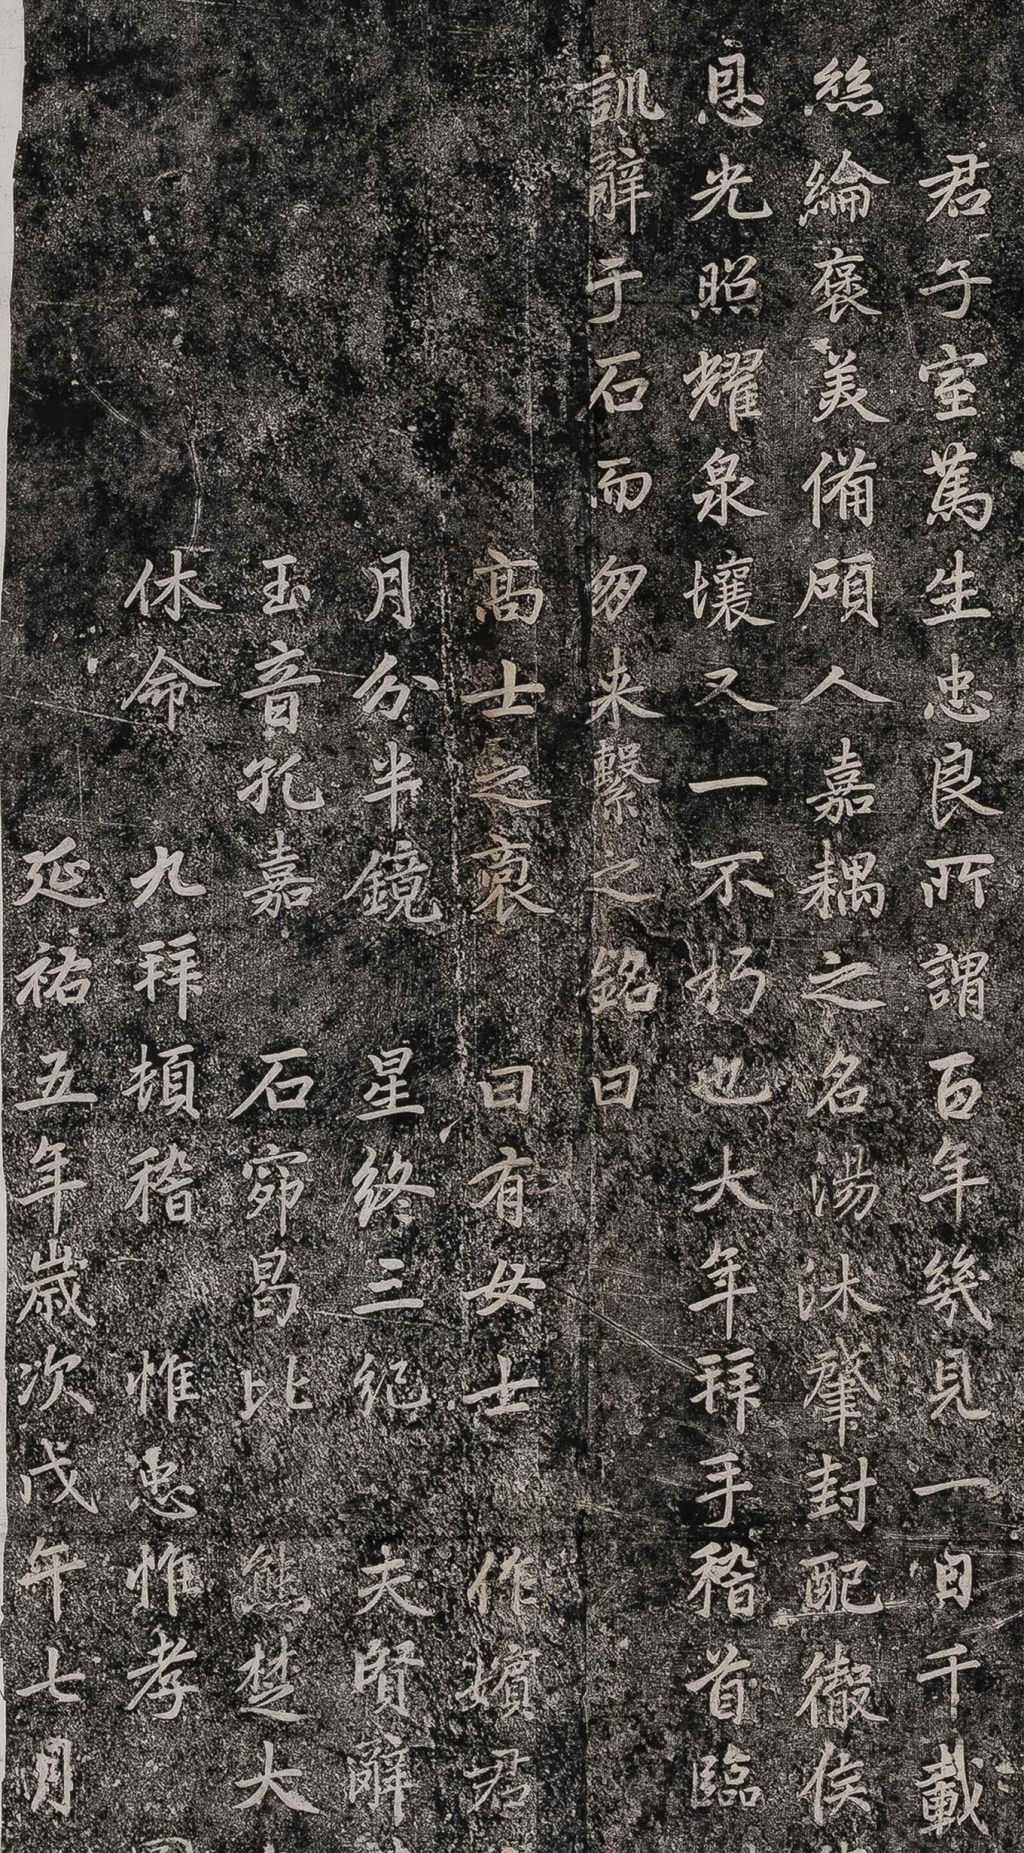 君子室篤生忠良所謂百年幾見一日千載
絲綸褒美備碩人嘉耦之名湯沐肇封配徹侯
息光照耀泉壤又一不朽也大年拜手稽首臨
訊辭于石而匆来繫之銘曰
高士之裔 曰有女士 作嬪君
月分半鏡 星終三紀 夫賢辭
玉音孔嘉 石窌昌比 熊焚大
休命 九拜頓稽 惟惠惟孝
延祐五年歲次戊午七月